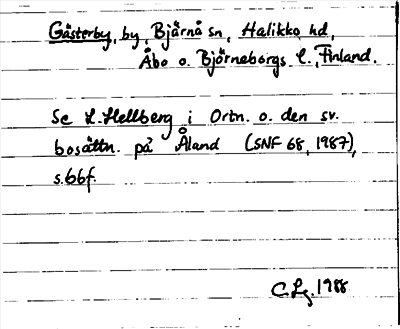 Gåsterby, by, Bjärnå sn, Halikko hd,
Åbo o. Björneborgs l., Finland.
Se L. Hellberg i Ortn. o. den sv.
bosättn. på Åland (SNF 68, 1987),
s. 66f.
C. Lg. 1988